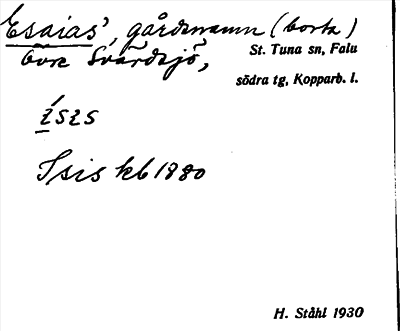 Esaias', gårdsnamn (borta)
St. Tuna sn, Falu
övre Svärdsjö,
södra tg, Kopparb. l.
ísis
Isis kb 1880
H. Ståhl 1930